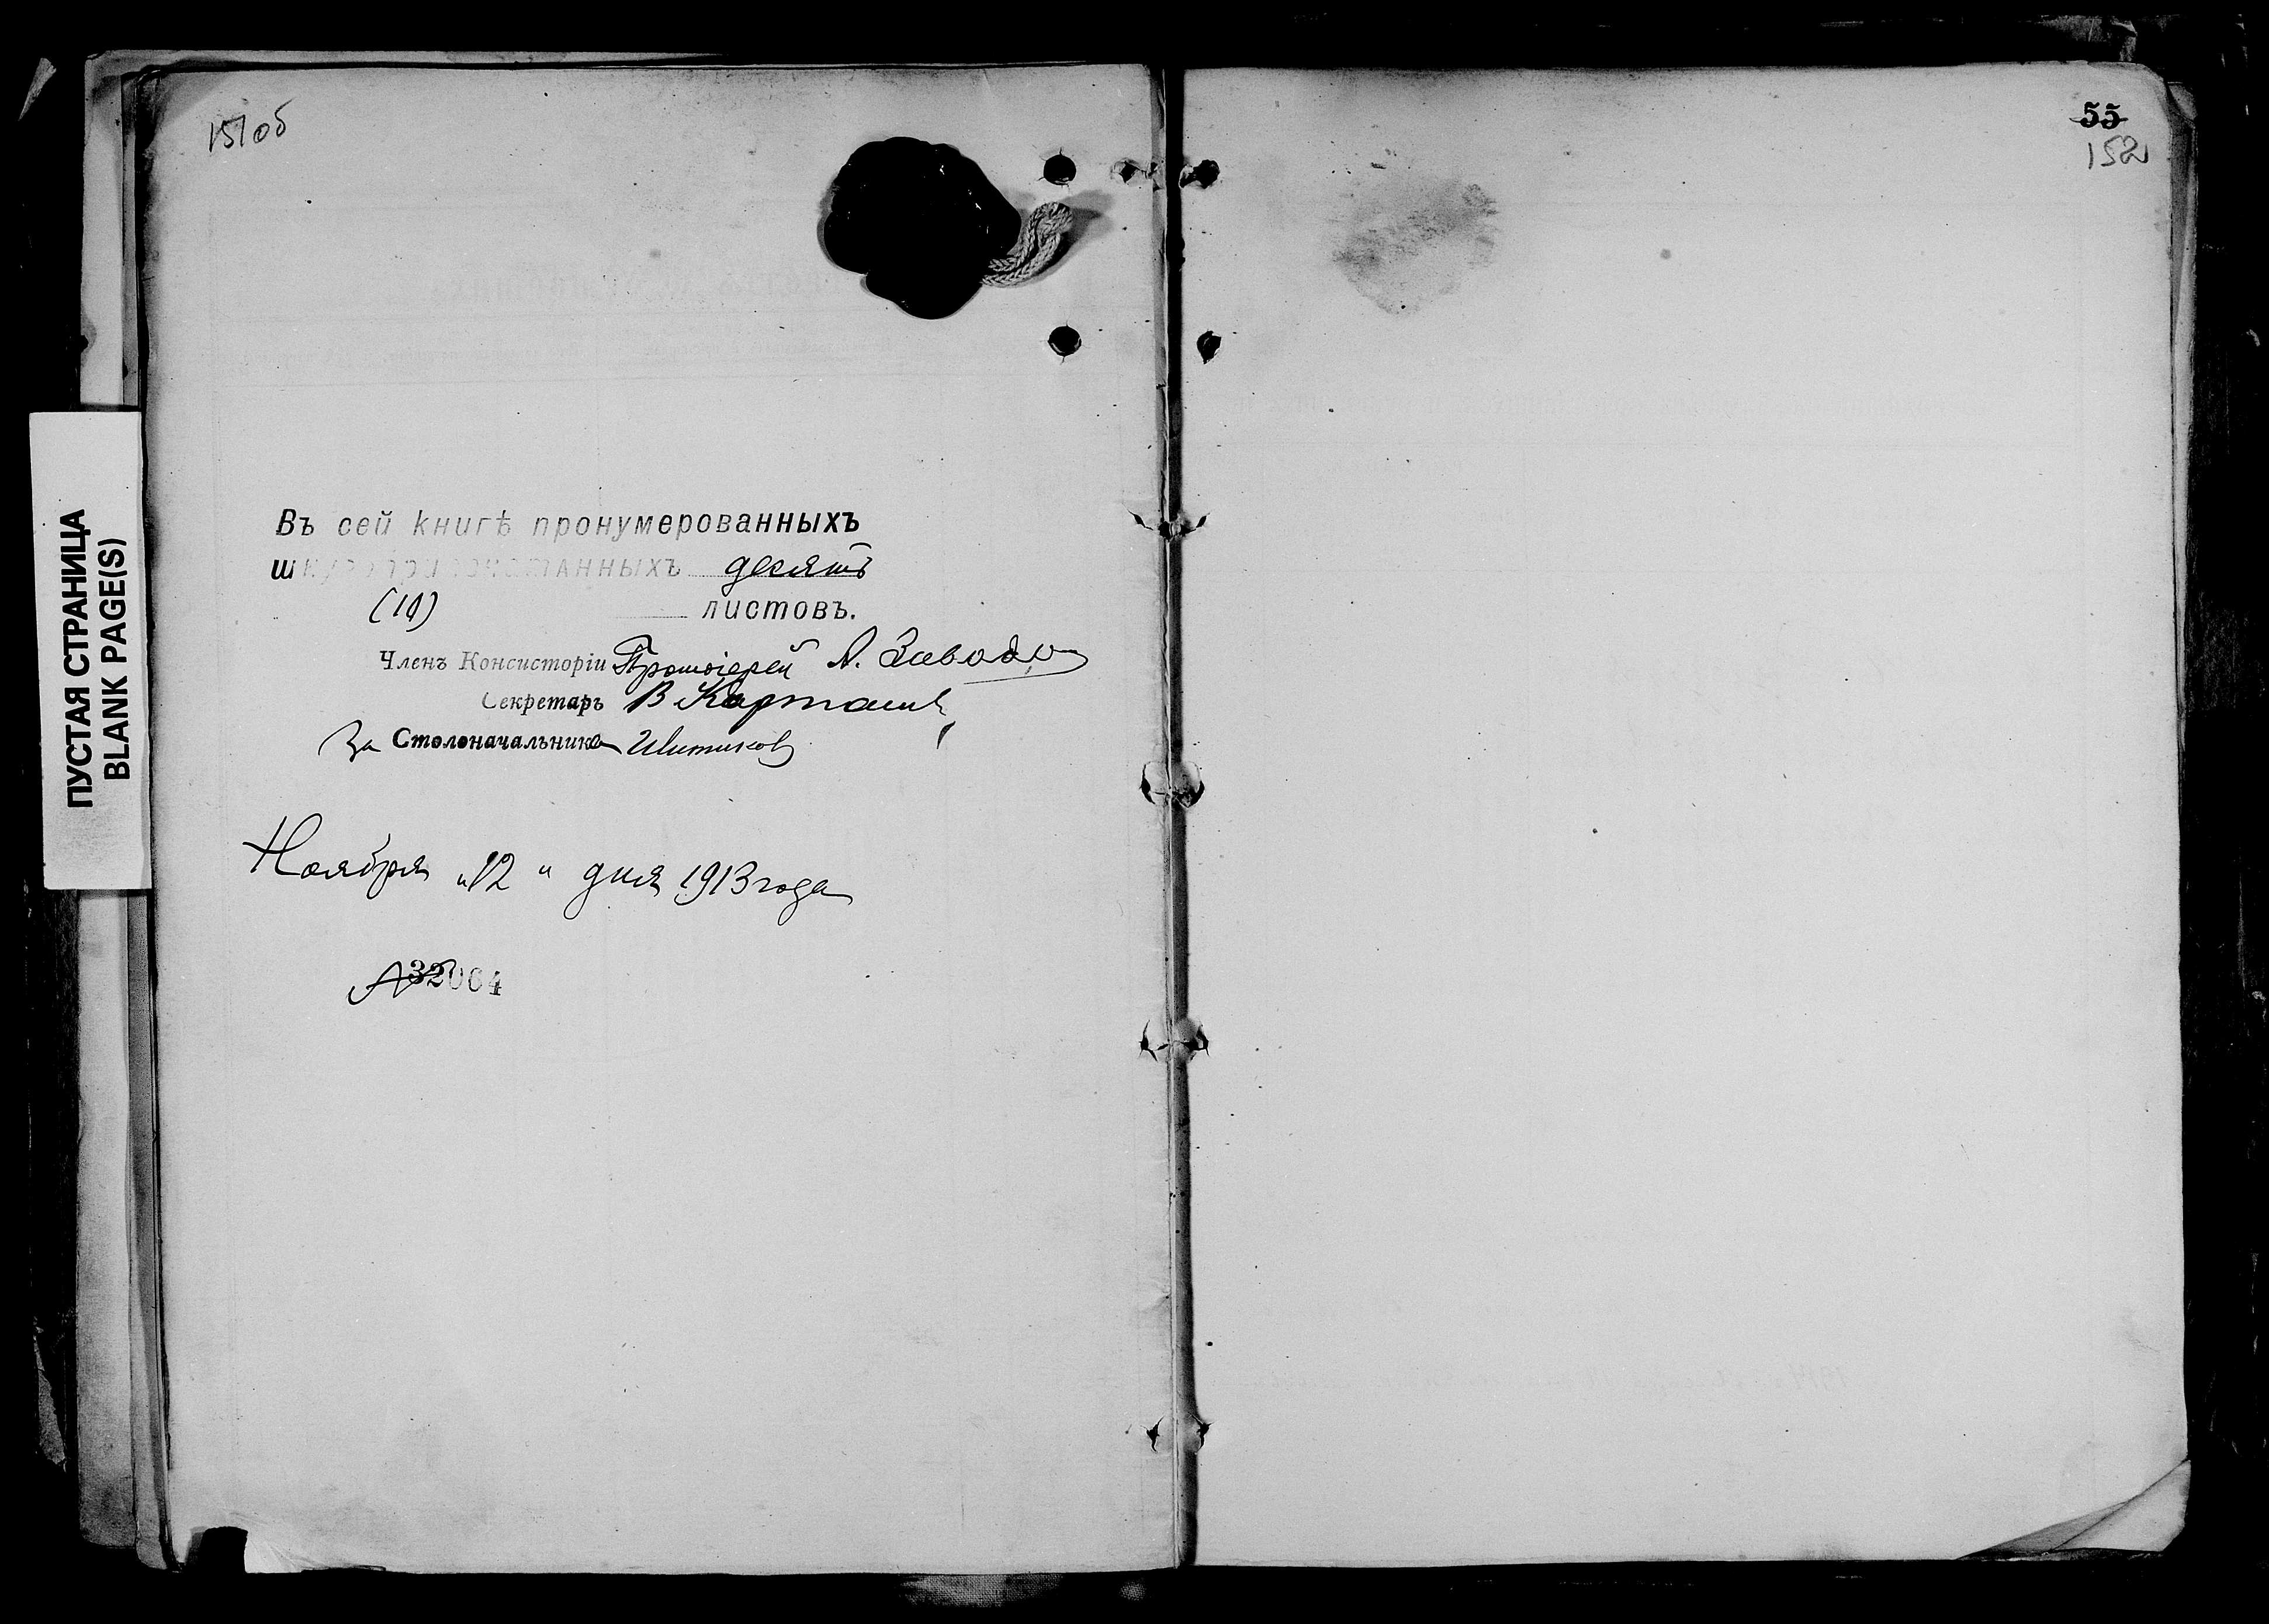 151 об
55
152
ПУСТАЯ СТРАНИЦА
BLANK PAGE(S)
Въ сей книгѣ пронумерованныхъ
шнуроприпечатанныхъ десять
(10) листовъ.
Членъ Консисторіи Протоіерей А.
Секретарь В
За Столоначальника
Ноября „12“ дня 1913 года
№ 32064